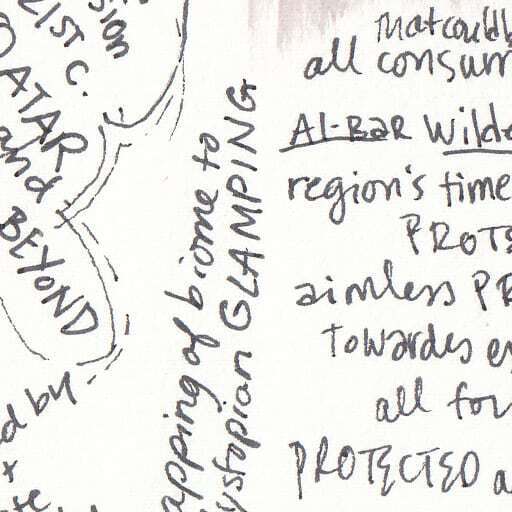 sion
LIST C.
QATAR
and
BEYOND
d by
x
apping of biome to
ystopian GLAMPING
That could b
all consum
Al-Bar Wilde
region's time
PROTE
aimless PR
Towardes e
all for
PROTECTED a